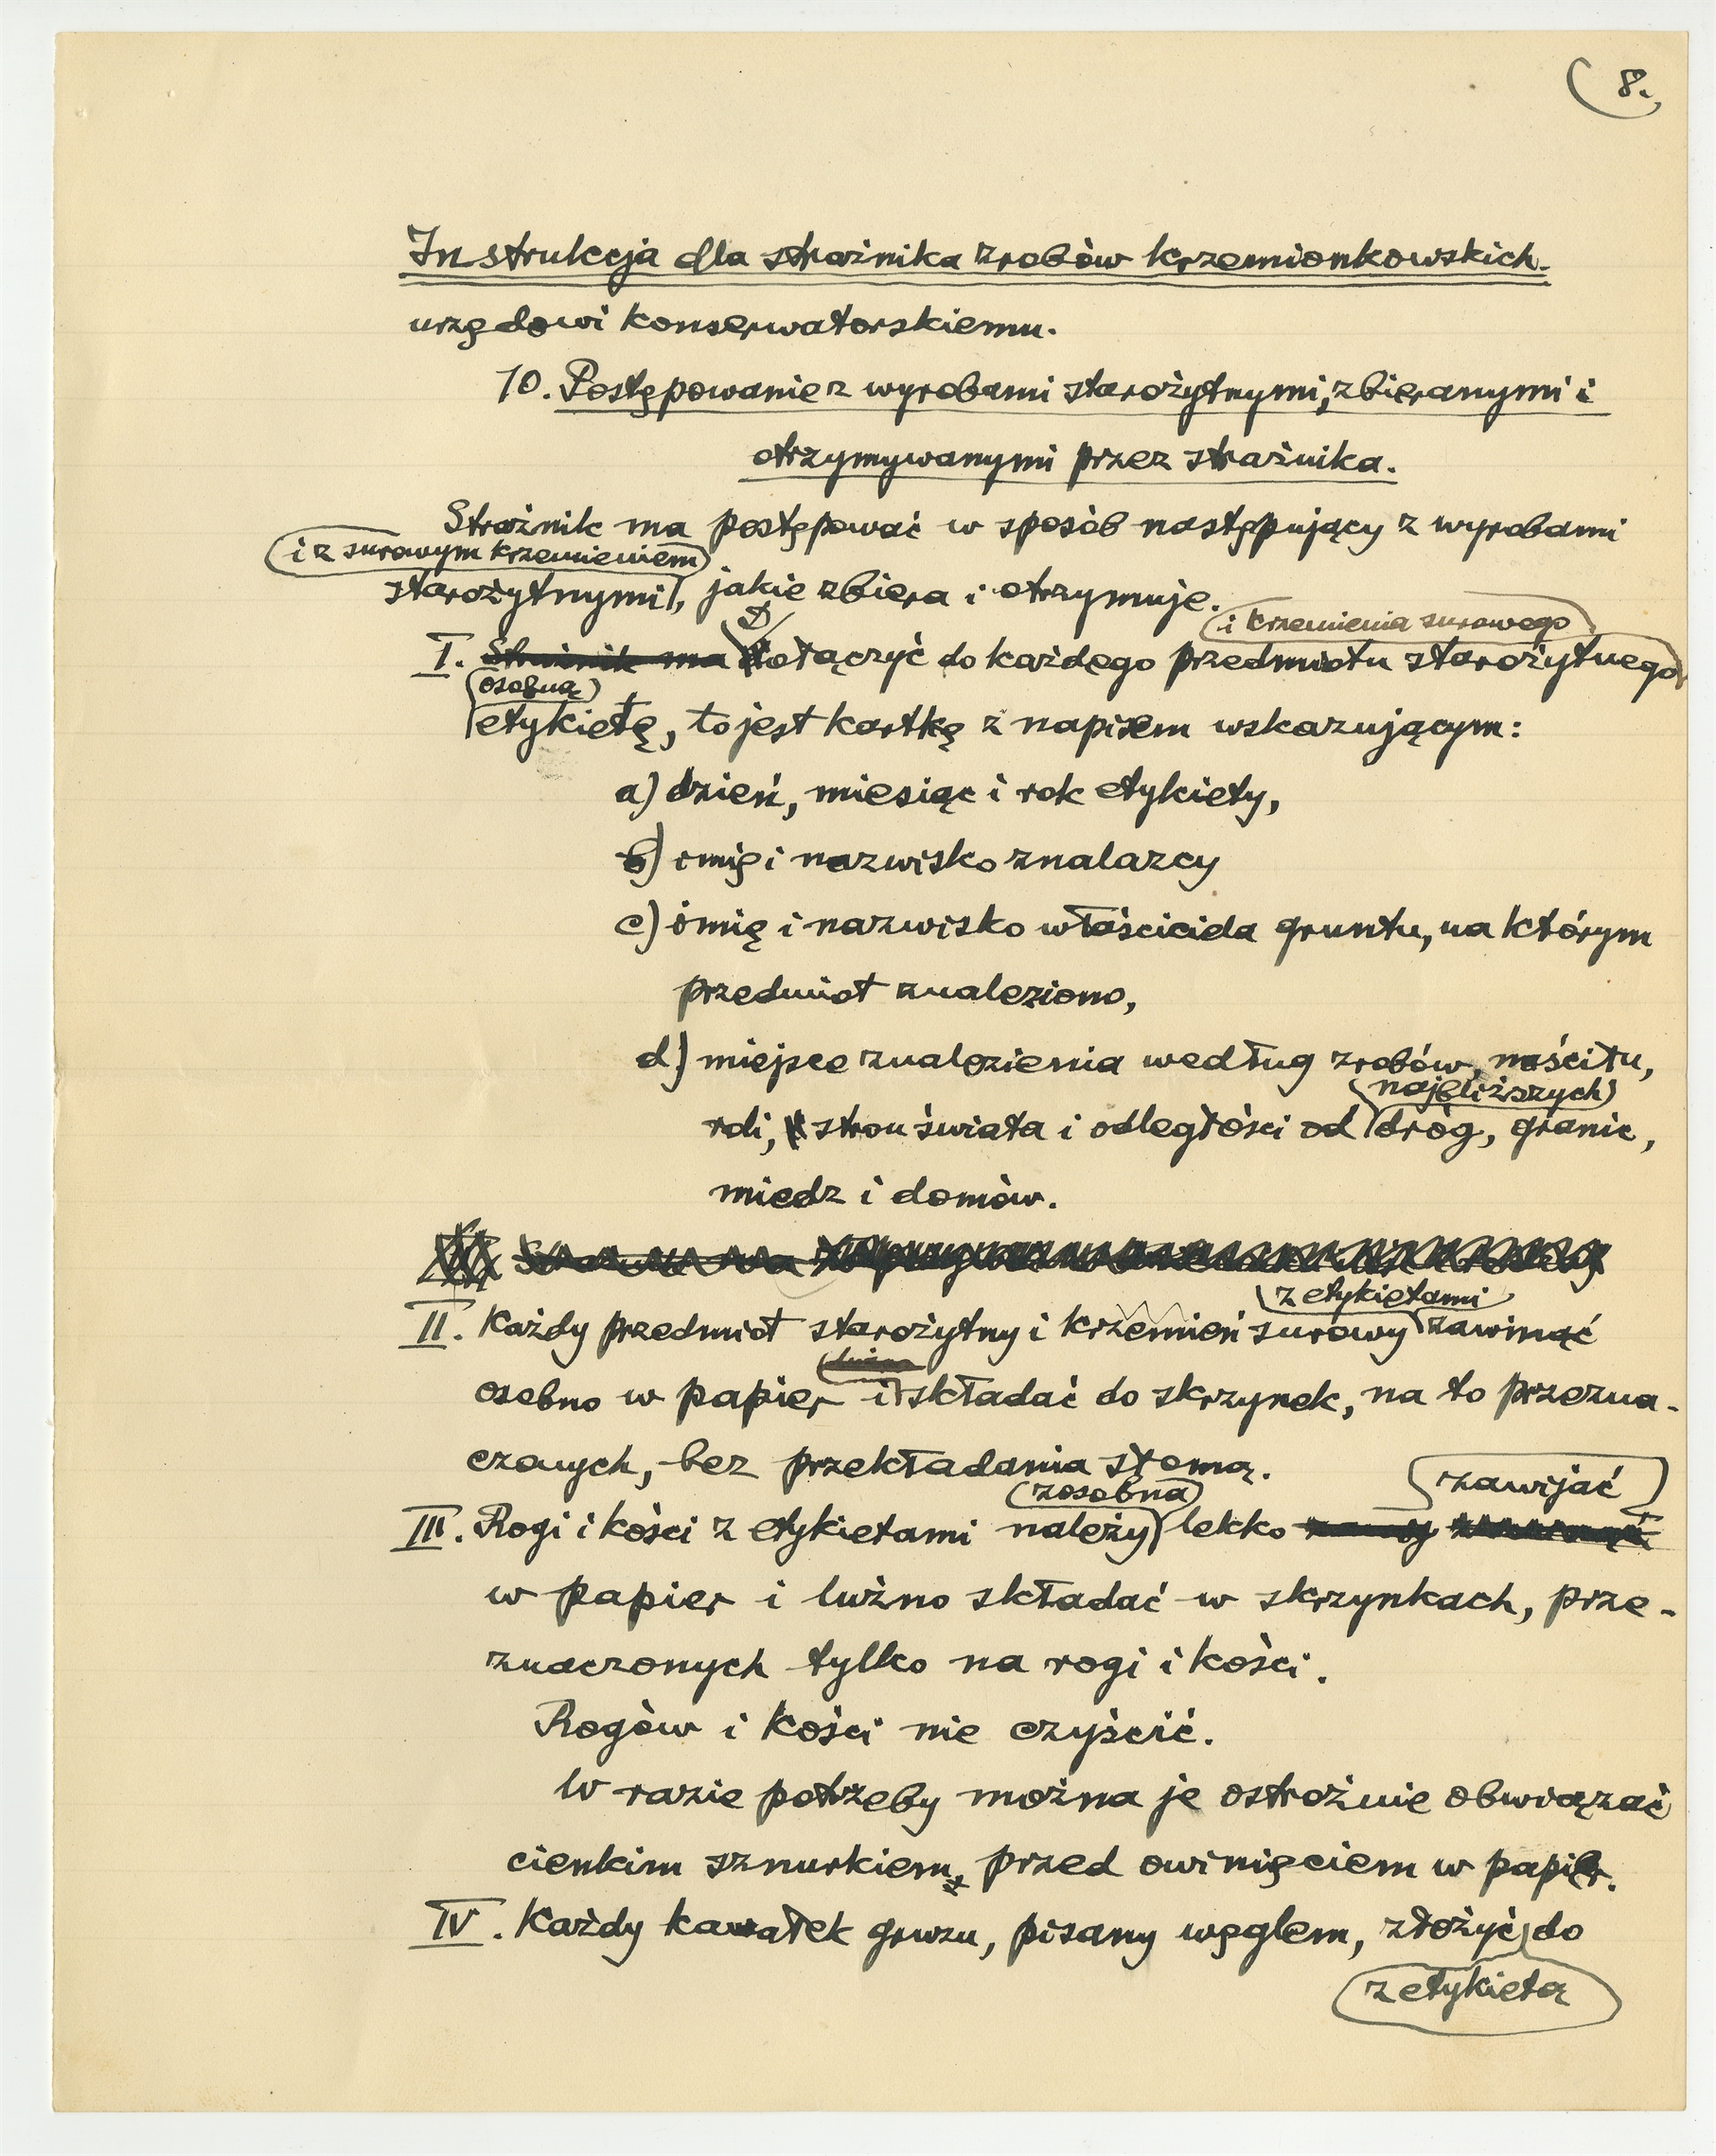 8.
Instrukcja dla strażnika zrobów krzemionkowskich.
urzędowi konserwatorskiemu.
10. Postępowanie z wyrobami starożytnymi, zbieranymi i
otrzymywanymi przez strażnika.
Strażnik ma postępować w sposób następujący z wyrobami
i z surowym krzemieniem
starożytnymi, jakie zbiera i otrzymuje.
i krzemienia surowego
I. Strażnik ma Dołączyć do każdego przedmiotu starożytnego
osobną
etykietę, to jest kartkę z napisem wskazującym:
a) dzień, miesiąc i rok etykiety,
b) imię i nazwisko znalazcy
c) imię i nazwisko właściciela gruntu, na którym
przedmiot znaleziono,
d) miejsce znalezienia według zrobów,
najbliższych
roli, stron świata i odległości od dróg, granic,
miedz i domów.
z etykietami
II. Każdy przedmiot starożytny i krzemień surowy zawinąć
osobno w papier i składać do skrzynek, na to przezna-
czonych, bez przekładania słomą.
zosobna zawijać
III. Rogi i kości z etykietami należy lekko
w papier i luźno składać w skrzynkach, prze-
znaczonych tylko na rogi i kości.
Rogów i kości nie czyścić.
W razie potrzeby można je ostrożnie obwiązać
cienkim sznurkiem, przed owinięciem w papier.
IV. Każdy kawałek gruzu, pisany węglem, złożyć do
z etykietą